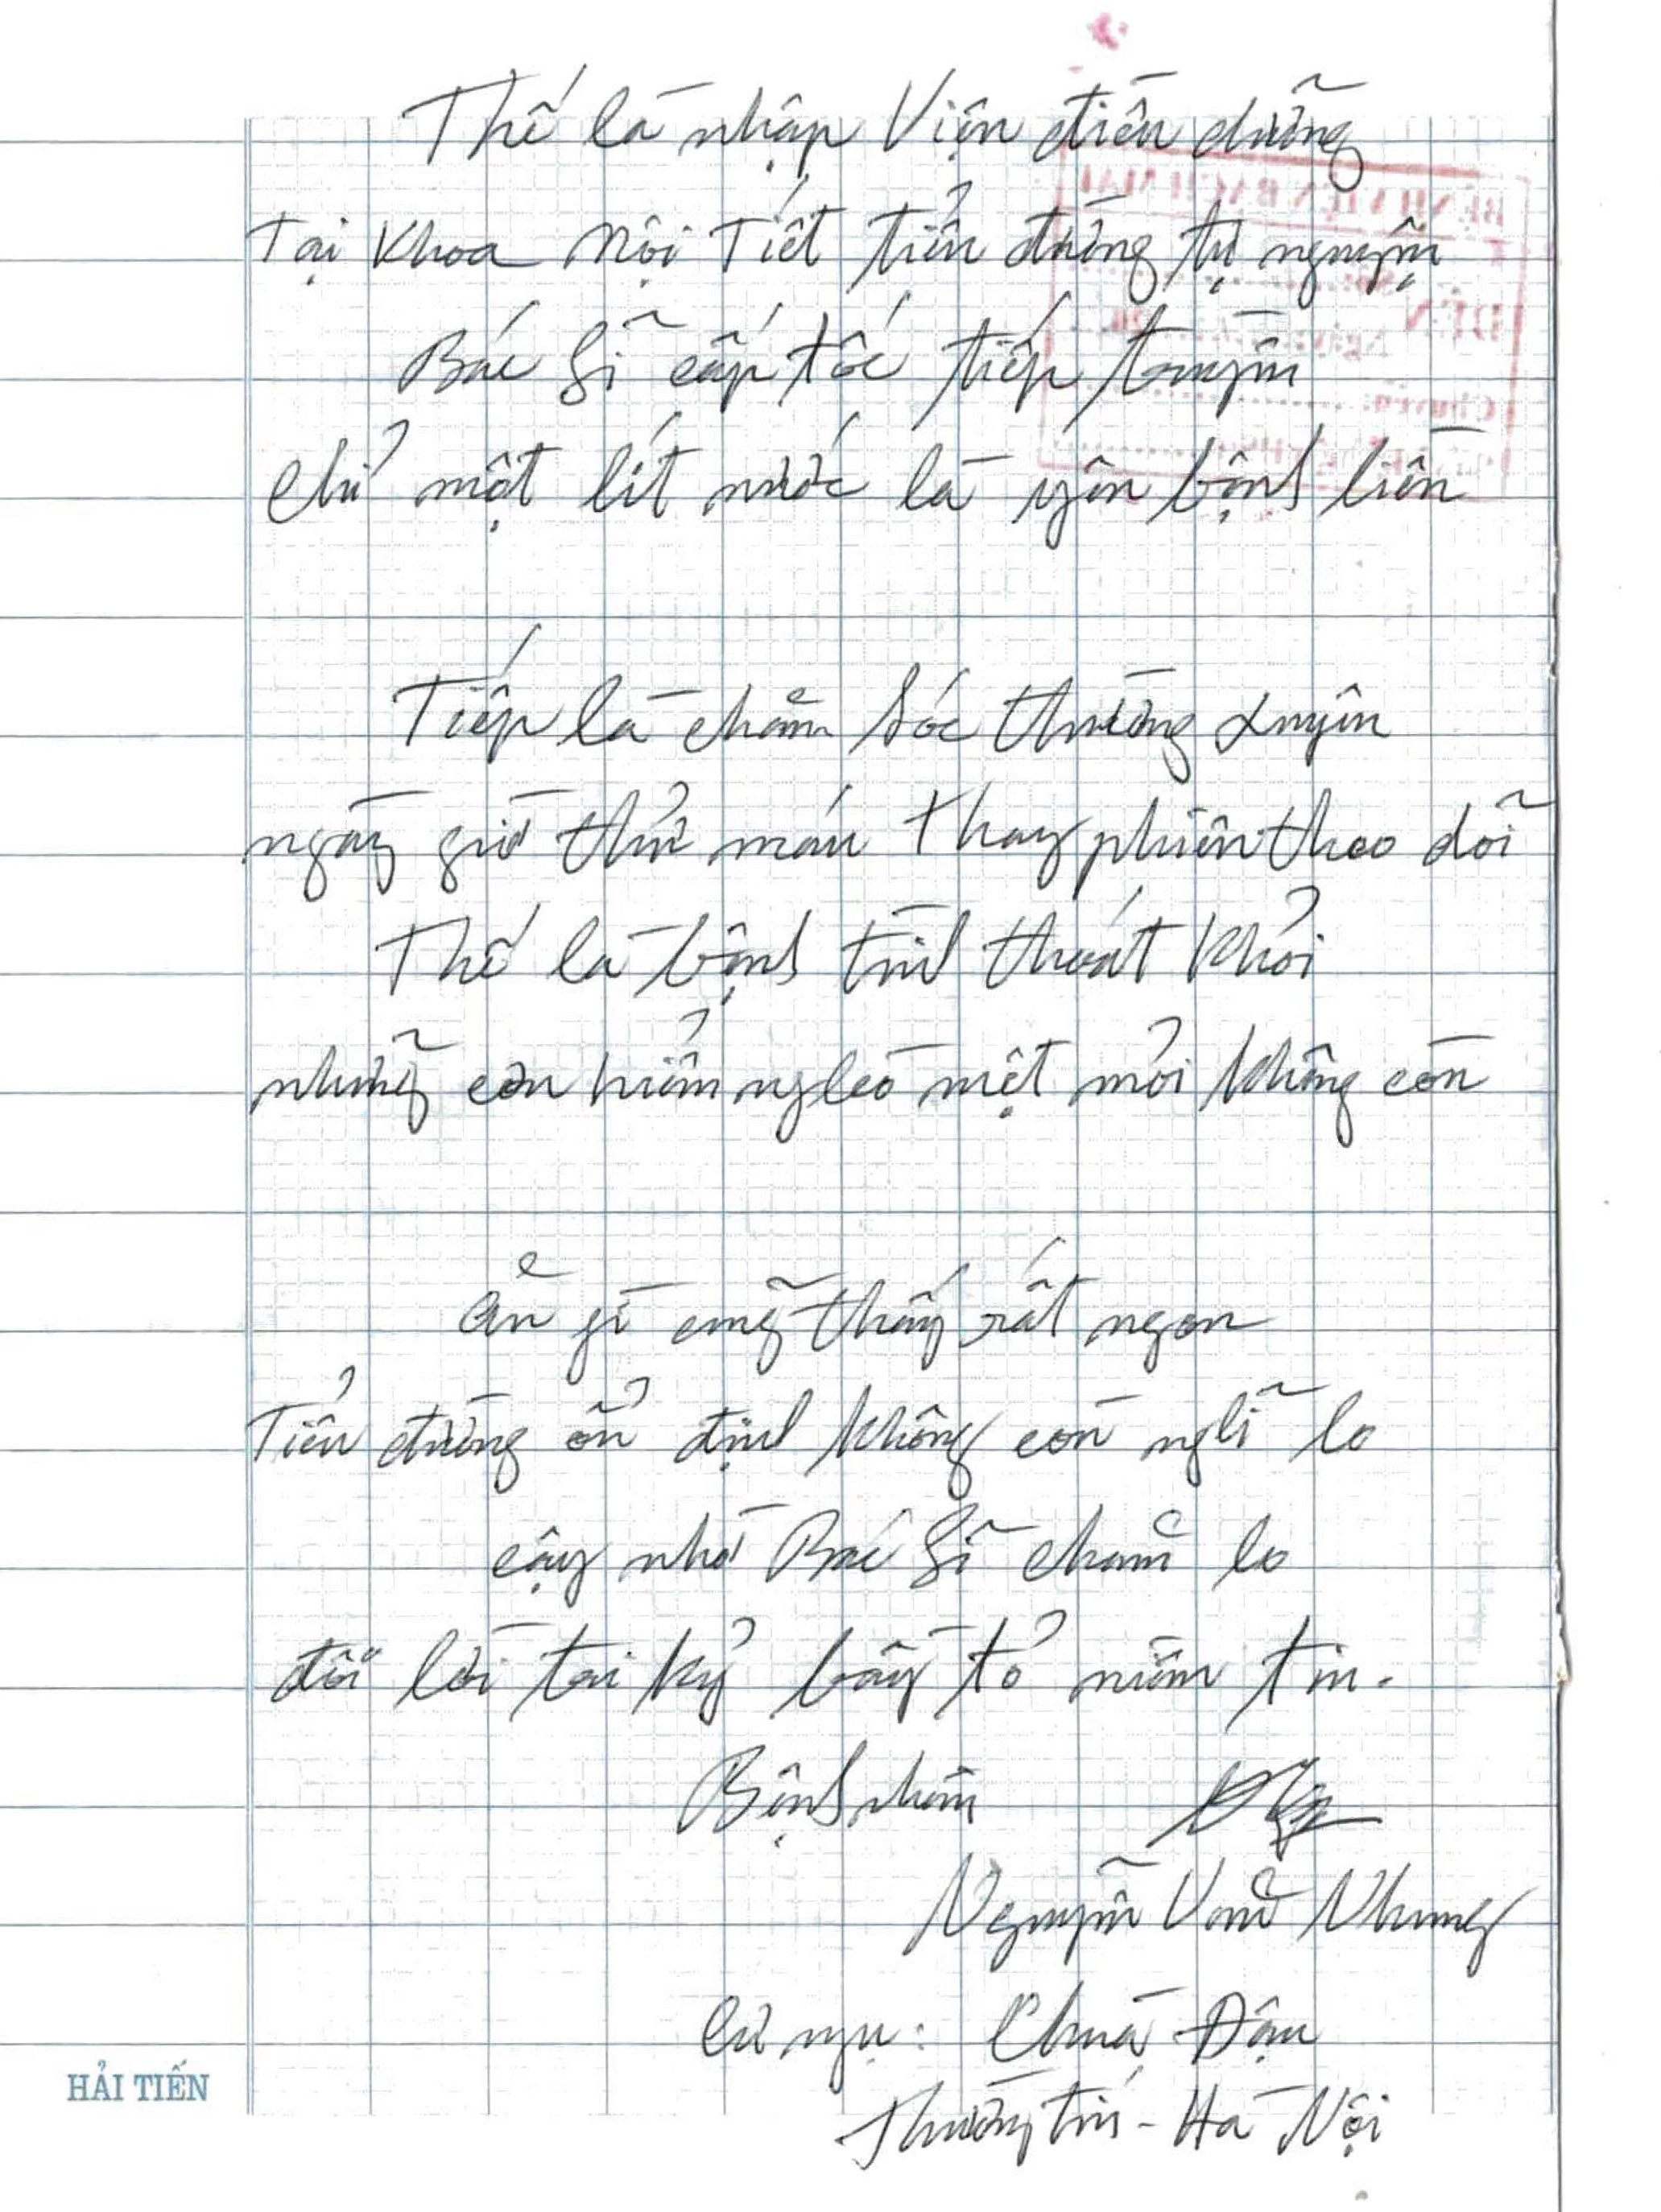 Thế là nhập Viện điều dưỡng
Tại Khoa Nội Tiết tiểu đường tự nguyện
Bác Sĩ cấp tốc tiếp truyền
Chỉ một lít nước là yên bệnh liền
Tiếp là chăm Sóc thường xuyên
ngày giờ thử máu thay phiên theo dõi
Thế là bệnh tình thoát khỏi
những cơn hiểm nghèo mệt mỏi không còn
ăn gì cũng thấy rất ngon
Tiểu đường ổn định không còn nghĩ lo
cậy nhờ Bác Sĩ chăm lo
đôi lời tri kỷ bày tỏ niềm tin.
Bệnh nhân
Nguyễn Văn Nhung
Cư ngụ: Chùa Đậu
Thường tín - Hà Nội
HẢI TIẾN
BỆNH VIỆN BẠCH MAI
ĐẾN